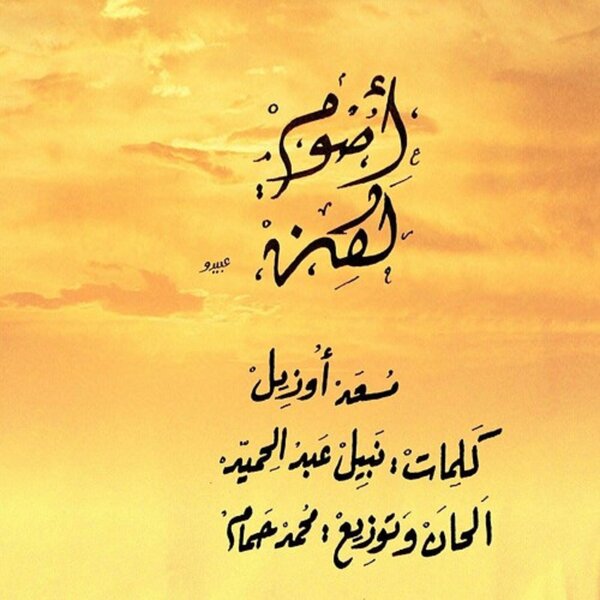 أصُوْم
عبيدو
مُسعَدْ أُوزِيلْ
كَلِمَاتْ : نَبِيلْ عَبدْ الحِميّدْ
اَلحَانْ وَتوَزِيعْ : مُحمدْ حَمامْ